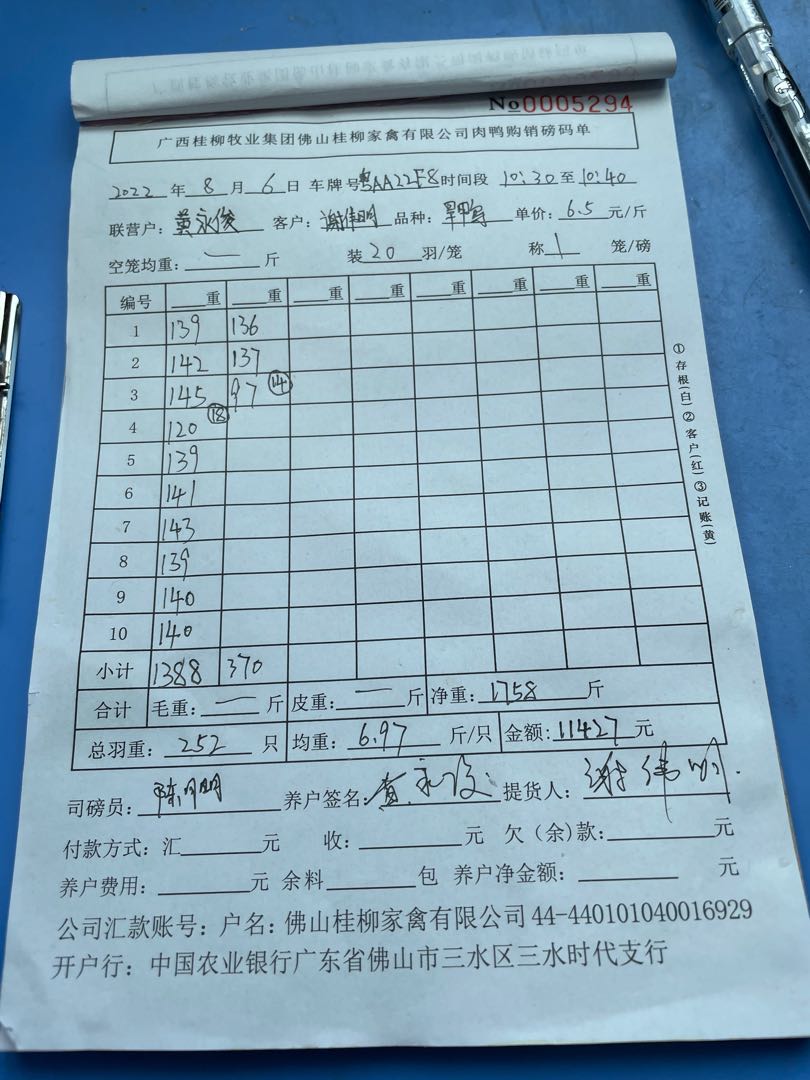 No0005294
广西桂柳牧业集团佛山桂柳家禽有限公司肉鸭购销磅码单
2022 年 8 月 6 日 车牌号粤AA22F8 时间段 10:30 至 10:40
联营户：黄永俊 客户：谢伟明 品种： 单价：6.5 元/斤
空笼均重：一 斤 装 20 羽/笼 称 1 笼/磅
编号 重 重 重 重 重 重 重 重
1 139 136
2 142 137
3 145 97 ⑭
4 120 ⑱
5 139
6 141
7 143
8 139
9 140
10 140
小计 1388 370
合计 毛重：一 斤 皮重：一 斤 净重：1758 斤
总羽重：252 只 均重：6.97 斤/只 金额：11427 元
司磅员：陈明 养户签名：黄永俊 提货人：谢伟明
付款方式：汇 元 收： 元 欠（余）款： 元
养户费用： 元 余料 包 养户净金额： 元
公司汇款账号：户名：佛山桂柳家禽有限公司 44-440101040016929
开户行：中国农业银行广东省佛山市三水区三水时代支行
①存根(白)②客户(红)③记账(黄)